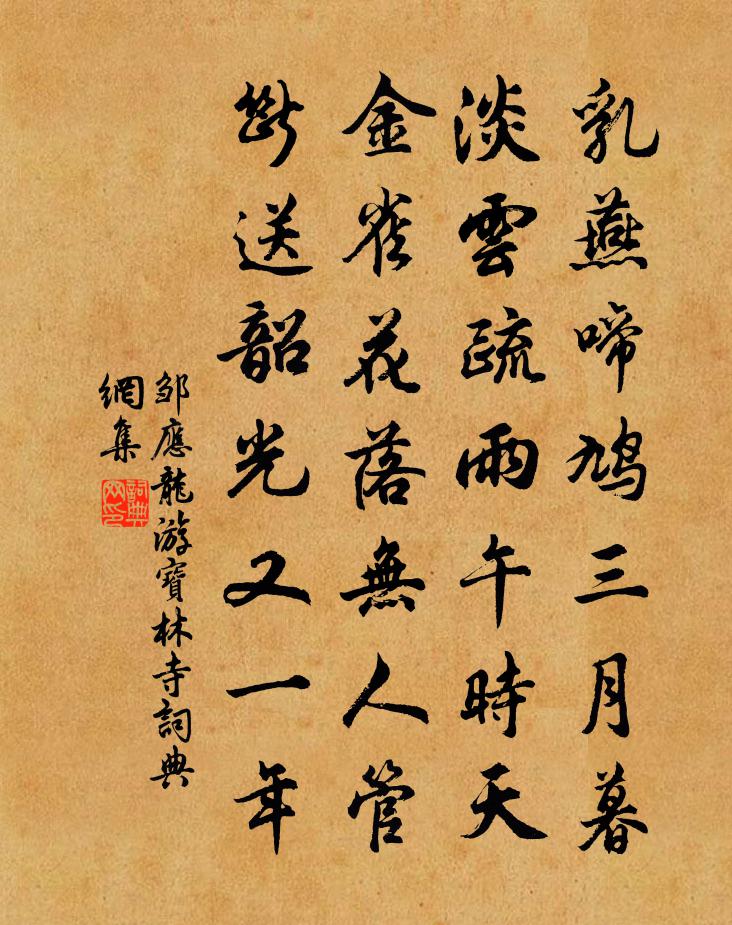 乳燕啼鳩三月暮
淡雲疏雨午時天
金雀花落無人管
斷送韶光又一年
鄒應龍游寶林寺詞典
網集
詞典
网印